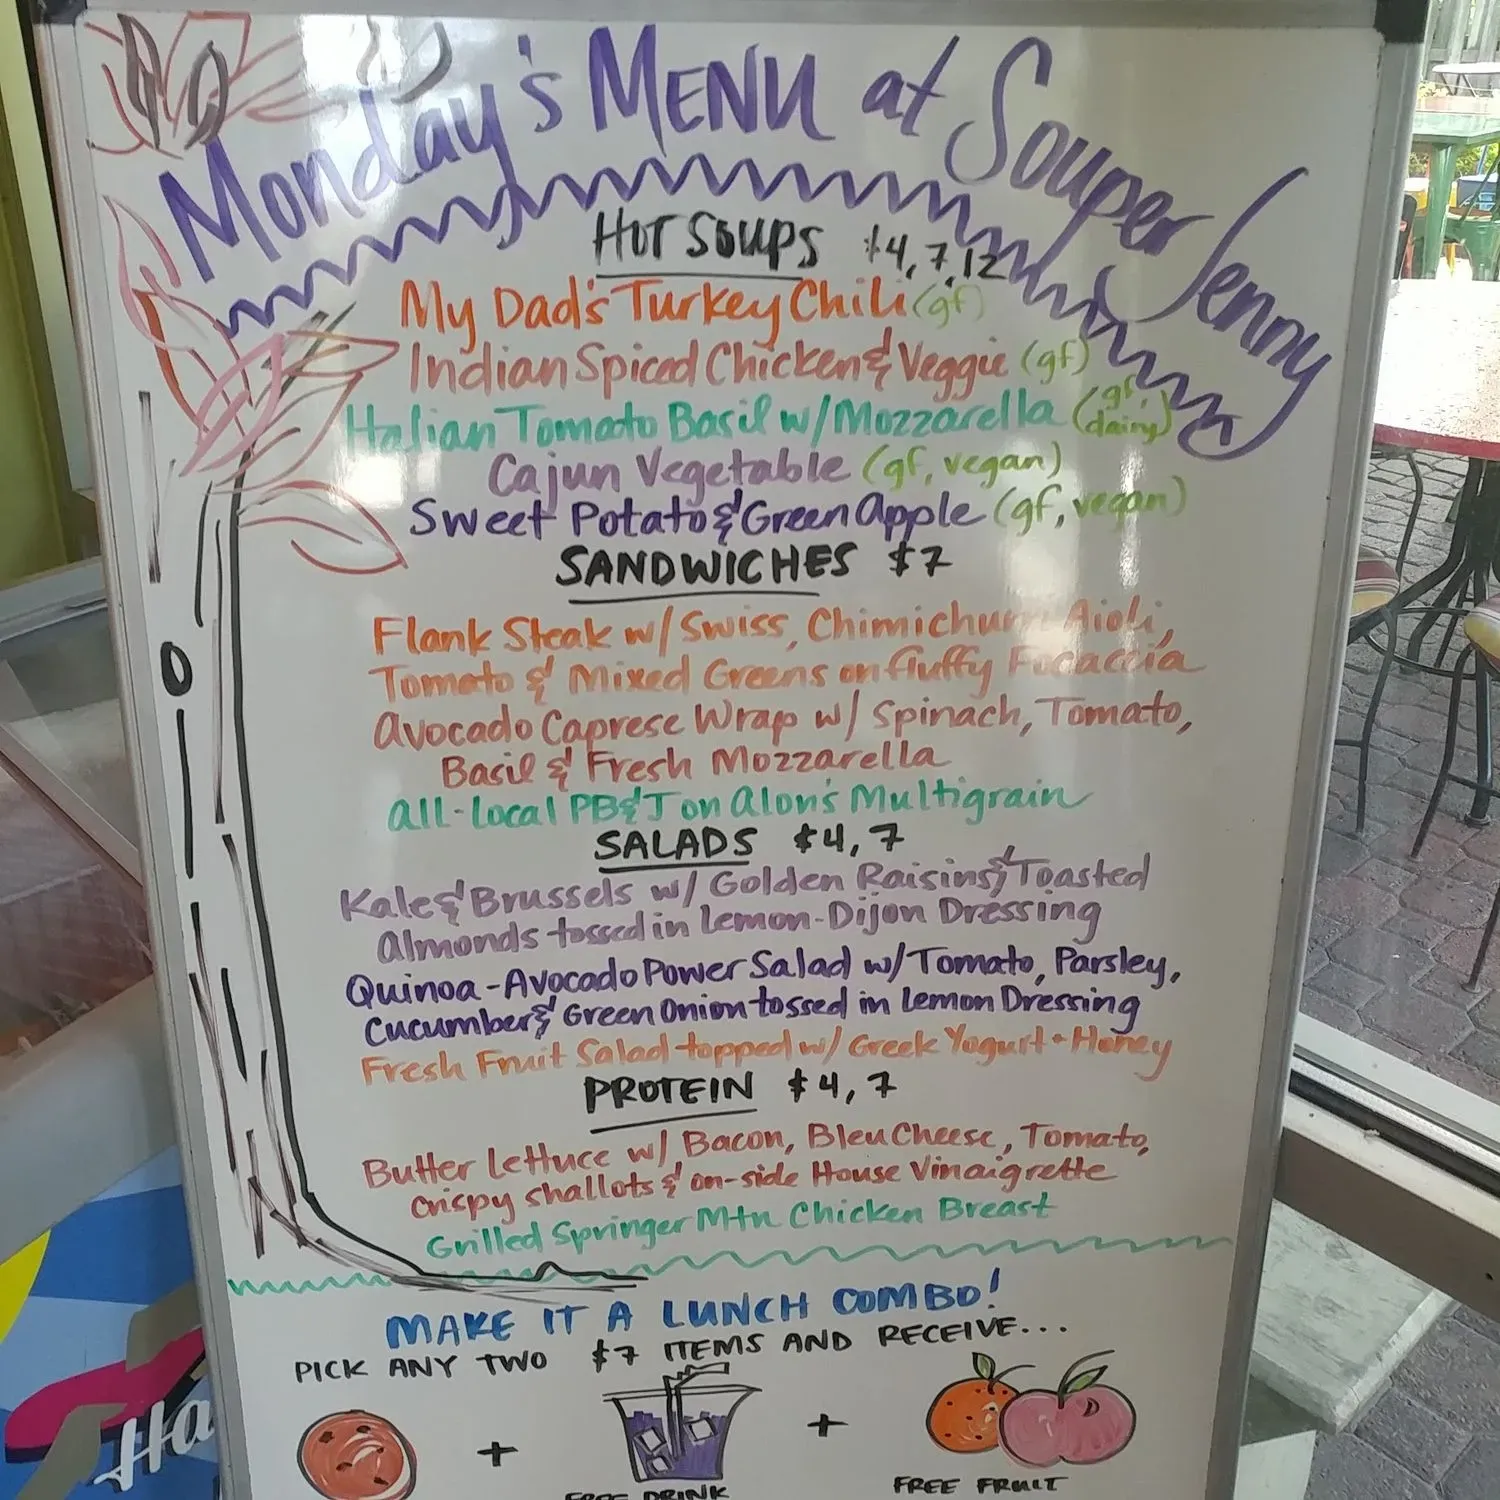 Monday's MENU at Souper Jenny
HOT SOUPS $4, 7, 12
My Dad's Turkey Chili (gf)
Indian Spiced Chicken & Veggie (gf)
Italian Tomato Basil w/ Mozzarella (gf, dairy)
Cajun Vegetable (gf, vegan)
Sweet Potato & Green Apple (gf, vegan)
SANDWICHES $7
Flank Steak w/ Swiss, Chimichurri Aioli,
Tomato & Mixed Greens on fluffy Focaccia
Avocado Caprese Wrap w/ Spinach, Tomato,
Basil & Fresh Mozzarella
All-Local PB&J on Alon's Multigrain
SALADS $4, 7
Kale & Brussels w/ Golden Raisins & Toasted
Almonds tossed in Lemon-Dijon Dressing
Quinoa-Avocado Power Salad w/ Tomato, Parsley,
Cucumber & Green Onion tossed in Lemon Dressing
Fresh Fruit Salad topped w/ Greek Yogurt + Honey
PROTEIN $4, 7
Butter Lettuce w/ Bacon, Bleu Cheese, Tomato,
Crispy Shallots & on-side House Vinaigrette
Grilled Springer Mtn Chicken Breast
MAKE IT A LUNCH COMBO!
PICK ANY TWO $7 ITEMS AND RECEIVE...
+ +
FREE DRINK FREE FRUIT
Ha